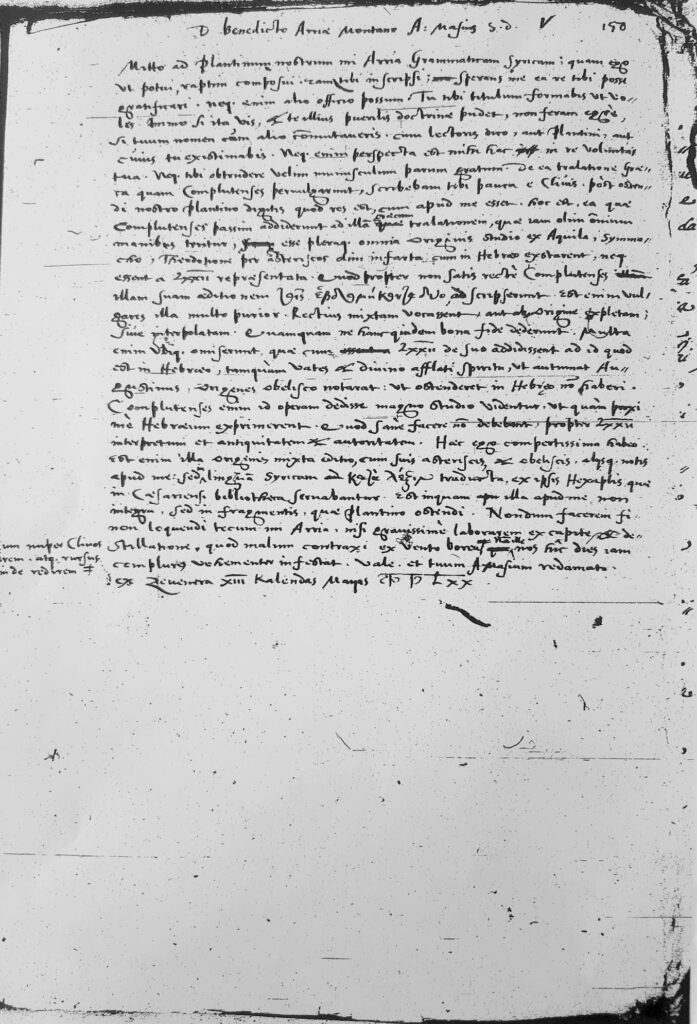 D. Benedicto Ariæ Montano A. Masius S. d. V 150
Mitto ad Plantinum nostrum mi Arria Grammaticam Syricam; quam ego
ut potui, raptim composui. eamq; tibi inscripsi; sperans me ea re tibi posse
gratificari. neq. enim alio officio possum. Tu tibi titulum formabis ut vo-
les. Immo si ita vis, & te illius puerilis doctrinæ pudet, non feram ægre,
si tuum nomen cum alio commutaveris. cum lectoris dico, aut Plantini, aut
cuius tu existimabis. Neq. enim perspecta est mihi hac in re voluntas
tua. Neq. tibi obtrudere velim munusculum parum gratum. De ea tralatione Græ-
ca quam Complutenses pervulgarunt, scribebam tibi pauca e Clivis. post osten-
di nostro Plantino digitis quod res est, cum apud me esset. hoc est, ea quæ
Complutenses passim addiderunt ad illam Græcam tralationem, quæ iam olim omnium
manibus teritur, esse pleraq. omnia Origenis studio ex Aquila, Symma-
cho, Theodotione per asteriscos olim infarta, cum in Hebræo exstarent, neq
essent a LXXII repræsentata. Quod propter non satis recte Complutenses
illam suam æditionem ad scripserunt. Est enim vul-
garis illa multo purior. Rectius mixtam vocassent, aut ab Origine expletam;
sive interpolatam. Quamquam ne hanc quidem bona fide dederunt. Multa
enim ubiq. omiserunt, quæ cum LXXII de suo addidissent ad id quod
est in Hebræo, tamquam vates & divino afflati spiritu, ut autumat Au-
gustinus, Origenes obelisco notarat: ut ostenderet in Hebręo nō haberi.
Complutenses enim id operam dedisse magno studio videntur, ut quam proxi
me Hebræum exprimerent. Quod sane facere nō debebant, propter LXXII
interpretum et antiquitatem & autoritatem. Hæc ego compertissima habeo.
Est enim illa Origenis mixta editio, cum suis asteriscis, & obeliscis, alijsq. notis
apud me: sed in linguam Syricam traducta, ex ipsis Hexaplis, quæ
in Cæsariensi bibliotheca servabantur. Est inquam illa apud me, non
integra, sed in fragmentis, quæ Plantino ostendi. Nondum facerem fi-
nem loquendi tecum mi Arria, nisi gravissime laborarem ex capitis de-
stillatione, quod malum contraxi ex vento borea, nos hūc dies iam
cum nuper Clivos
irem. atq. rursus
inde redirem
complures vehementer infestat. Vale. et tuum A Masium redamato.
Ex Zevenera XIII Kalendas Mayas LXX